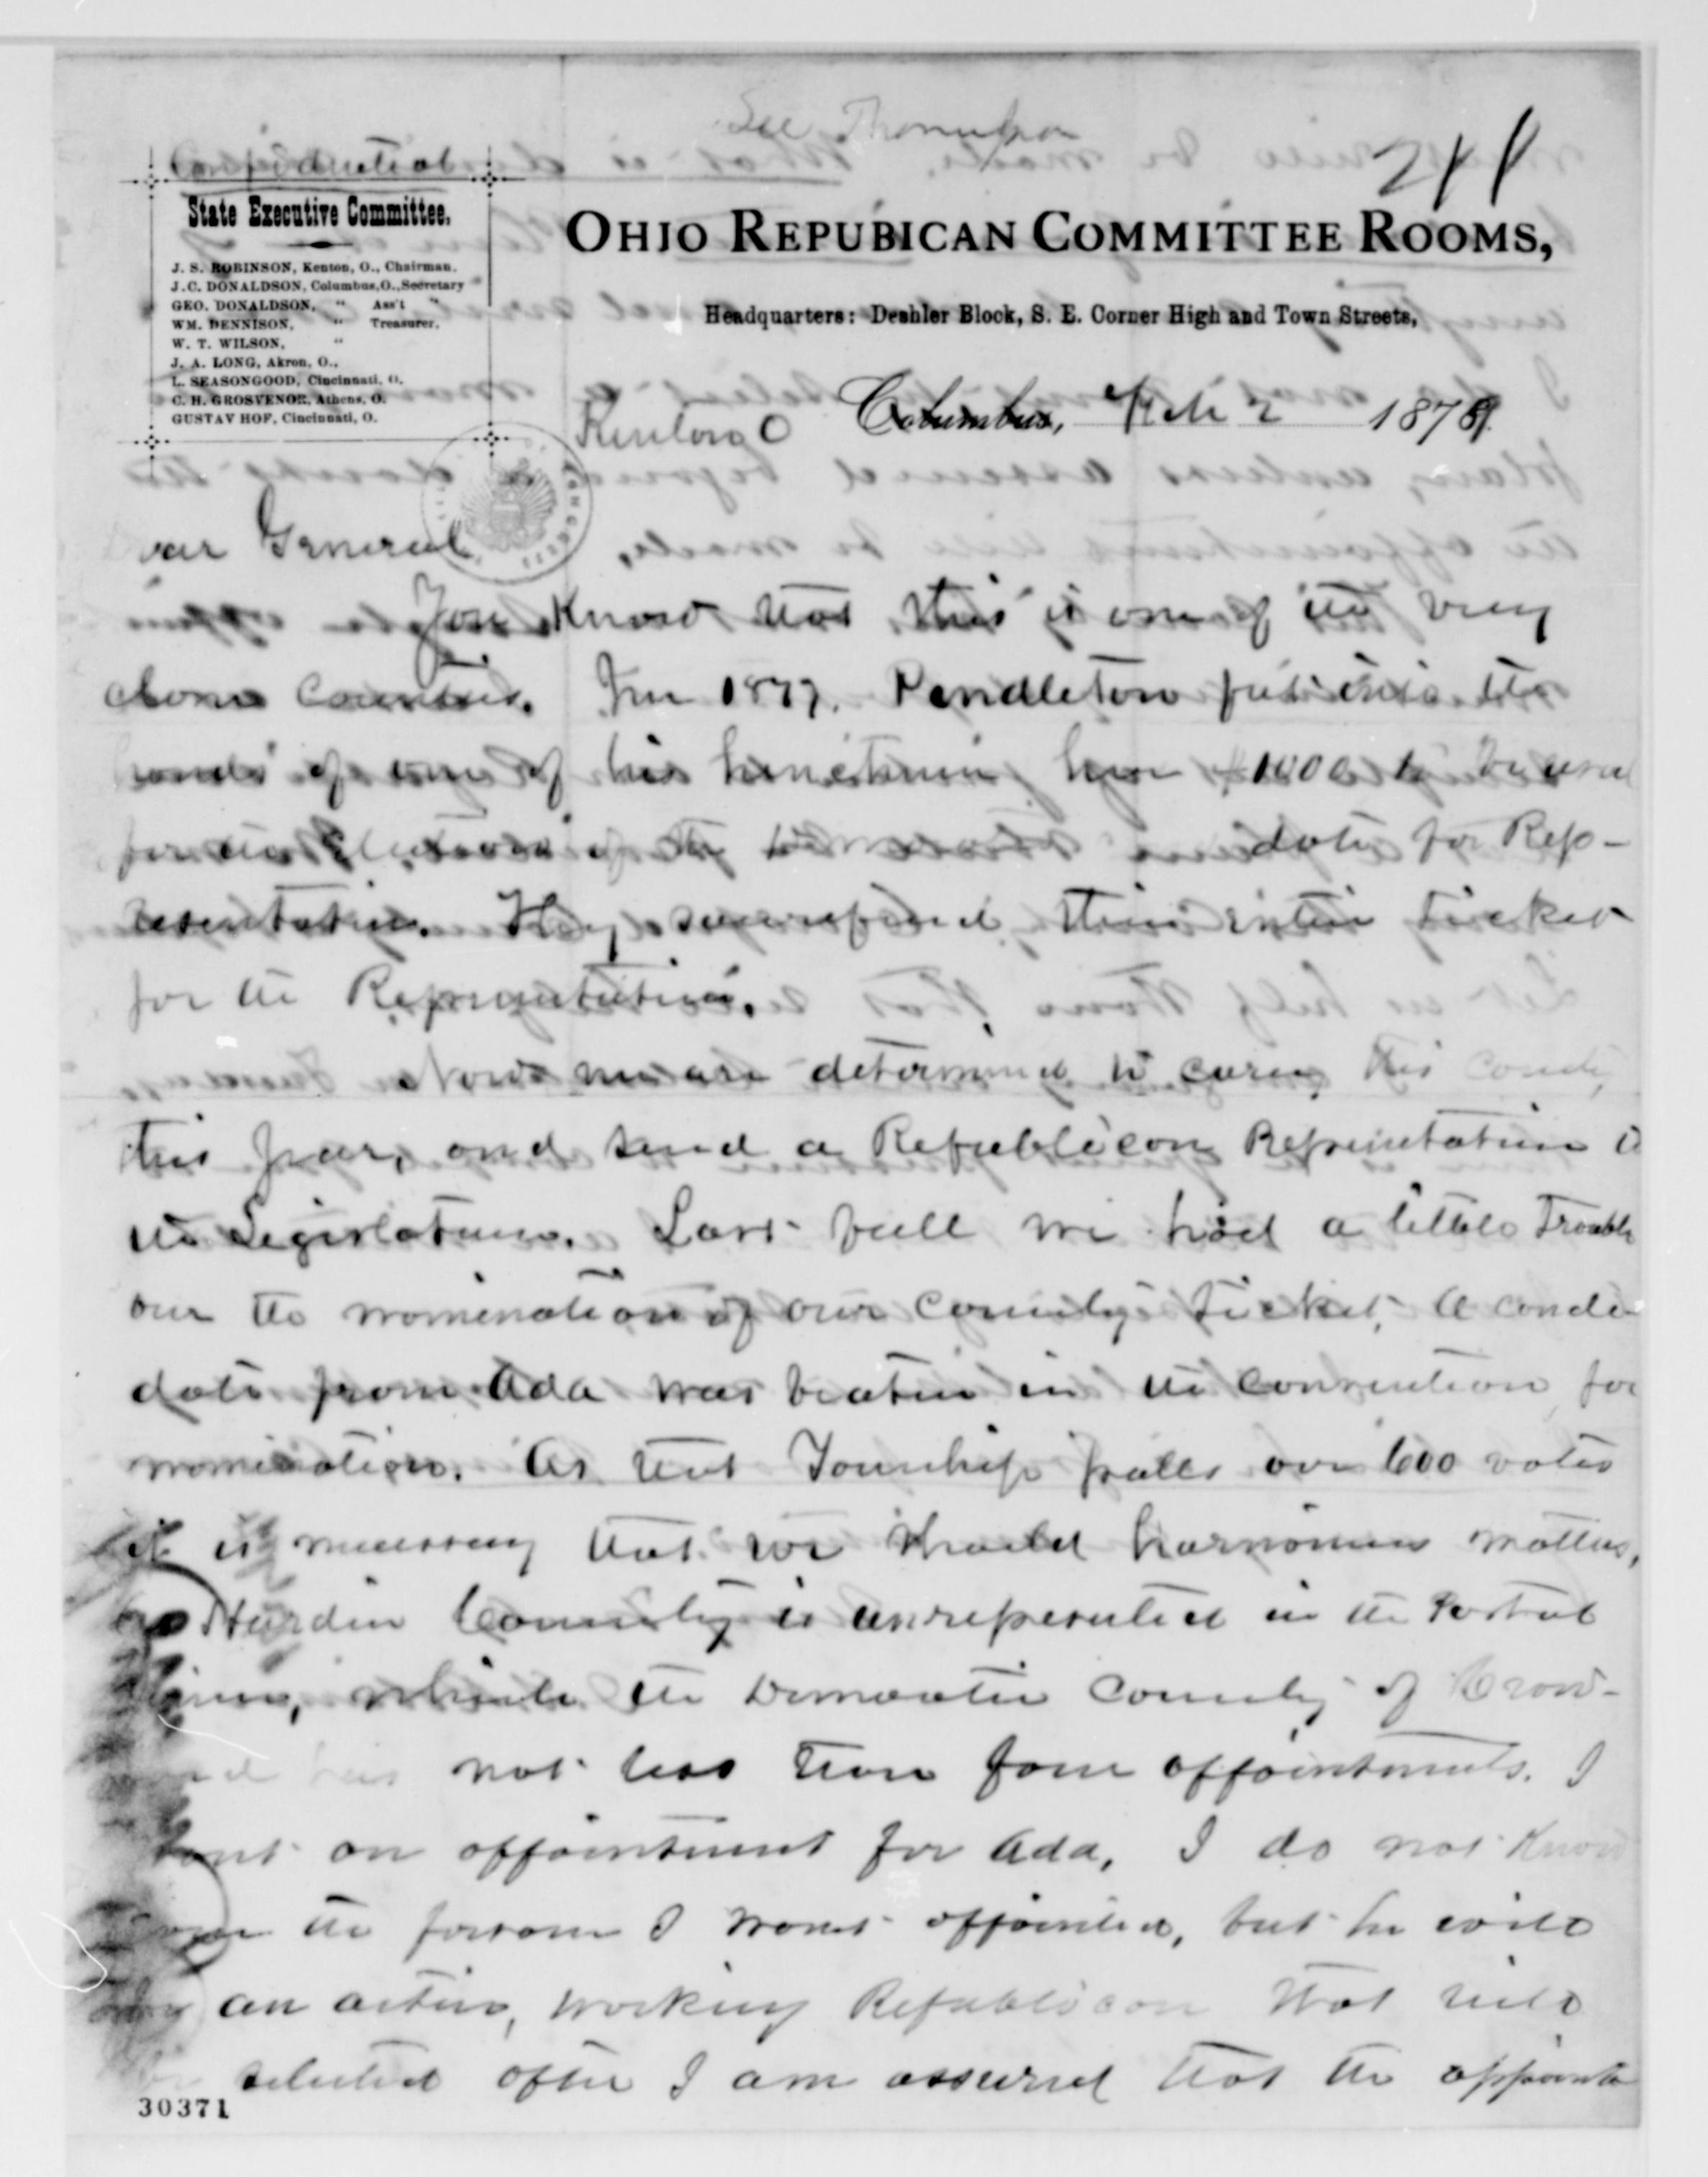 See Thompson
Confidential
State Executive Committee.
J. S. ROBINSON, Kenton, O., Chairman.
J. C. DONALDSON, Columbus, O., Secretary
GEO. DONALDSON, " Ass't "
WM. DENNISON, " Treasurer.
W. T. WILSON, "
J. A. LONG, Akron, O.,
L. SEASONGOOD, Cincinnati, O.
C. H. GROSVENOR, Athens, O.
GUSTAV HOF, Cincinnati, O.
OHIO REPUBICAN COMMITTEE ROOMS,
Headquarters: Deshler Block, S. E. Corner High and Town Streets,
Kenton O Columbus, Feb 2 1879
ear General
You Know that this is one of the very
close Counties. In 1877. Pendleton put into the
hands of one of his henchmen here $1000 to be used
for the Election of the date for Rep-
resentative. They sacrificed their entire ticket
for the Representative.
Now we are determined to carry this County
this year, and send a Republican Representative to
the Legislature. Last fall we had a little Trouble
over the nomination of our County ticket, A Candi-
date from Ada was beaten in the Convention for
nomination. As that Township polls over 600 votes
it is necessary that we should harmonise matters,
Hardin County is unrepresented in the Postal
while the Democratic County of Craw-
has not less than four appointments. I
want an appointment for Ada, I do not Know
the person I want appointed, but he will
an active, working Republican that will
be selected after I am assured that the appoint
30371